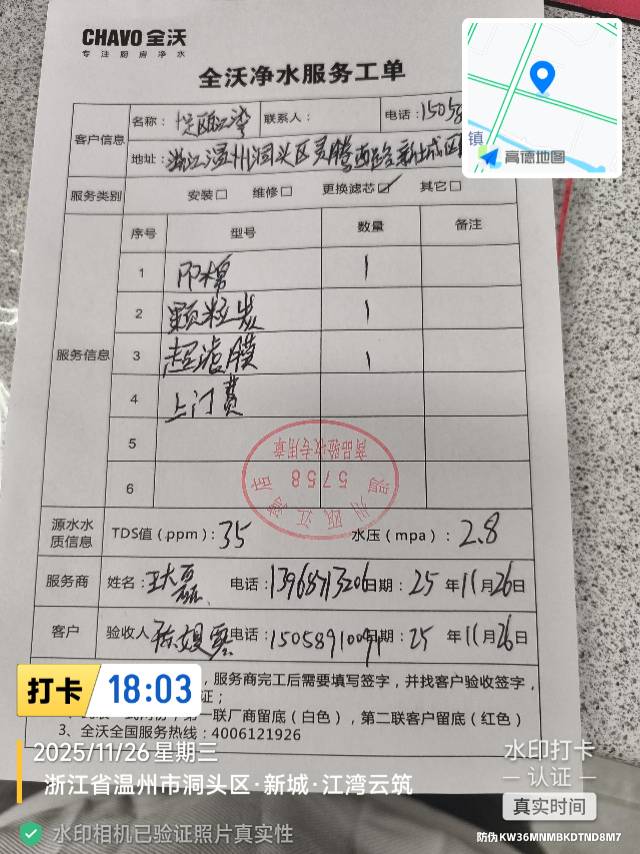 CHAVO 全沃
专注厨房净水
全沃净水服务工单
客户信息
名称：悦瓯江湾 联系人： 电话：15058
地址：浙江温州洞头区灵腾西路新城
镇
高德地图
服务类别 安装□ 维修□ 更换滤芯☑ 其它□
服务信息
序号 型号 数量 备注
1 PP棉 1
2 颗粒炭 1
3 超滤膜 1
4 上门费
5
6
温州瓯江湾店
5758
商品验收专用章
源水水质信息 TDS值（ppm）：35 水压（mpa）：2.8
服务商 姓名：王大磊 电话：13968713206 日期：25 年 11 月 26 日
客户 验收人 电话：15058910091 日期：25 年 11 月 26 日
，服务商完工后需要填写签字，并找客户验收签字，
证；
第一联厂商留底（白色），第二联客户留底（红色）
3、全沃全国服务热线：4006121926
打卡 18:03
2025/11/26 星期三
浙江省温州市洞头区·新城·江湾云筑
水印相机已验证照片真实性
水印打卡
认证
真实时间
防伪 KW36MNMBKDTND8M7